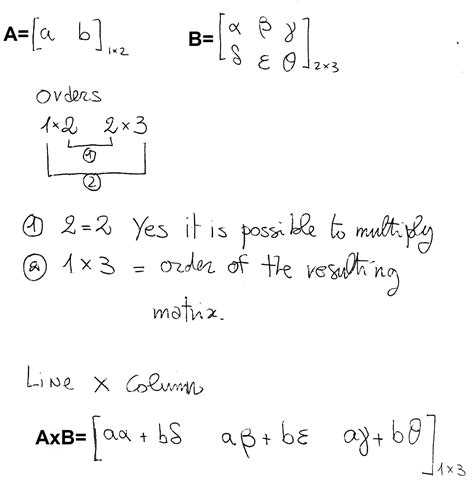 A=[a b]1×2 B=[α β γ
δ ε θ]2×3
orders
1×2 2×3
①
②
① 2=2 Yes it is possible to multiply
② 1×3 = order of the resulting
matrix.
Line × Column
AxB=[aα + bδ aβ + bε aγ + bθ]1×3